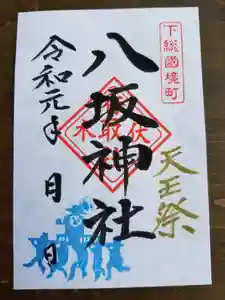 下総國境町
天王祭
八坂神社
伏木取
令和元年 月 日